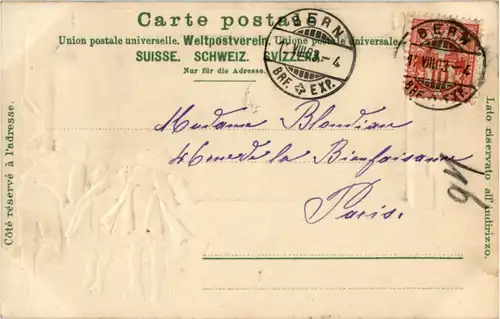 Carte postale
Union postale universelle. Weltpostverein. Unione postale universale.
SUISSE. SCHWEIZ. SVIZZERA.
Nur für die Adresse.
BERN
17. VIII. 03. – 4
BRF. EXP.
BERN
17. VIII. 03. – 4
BRF. EXP.
Côté réservé à l'adresse.
Lato riservato all'indirizzo.
Madame Blondiau
46 rue de la Bienfaisance
Paris.